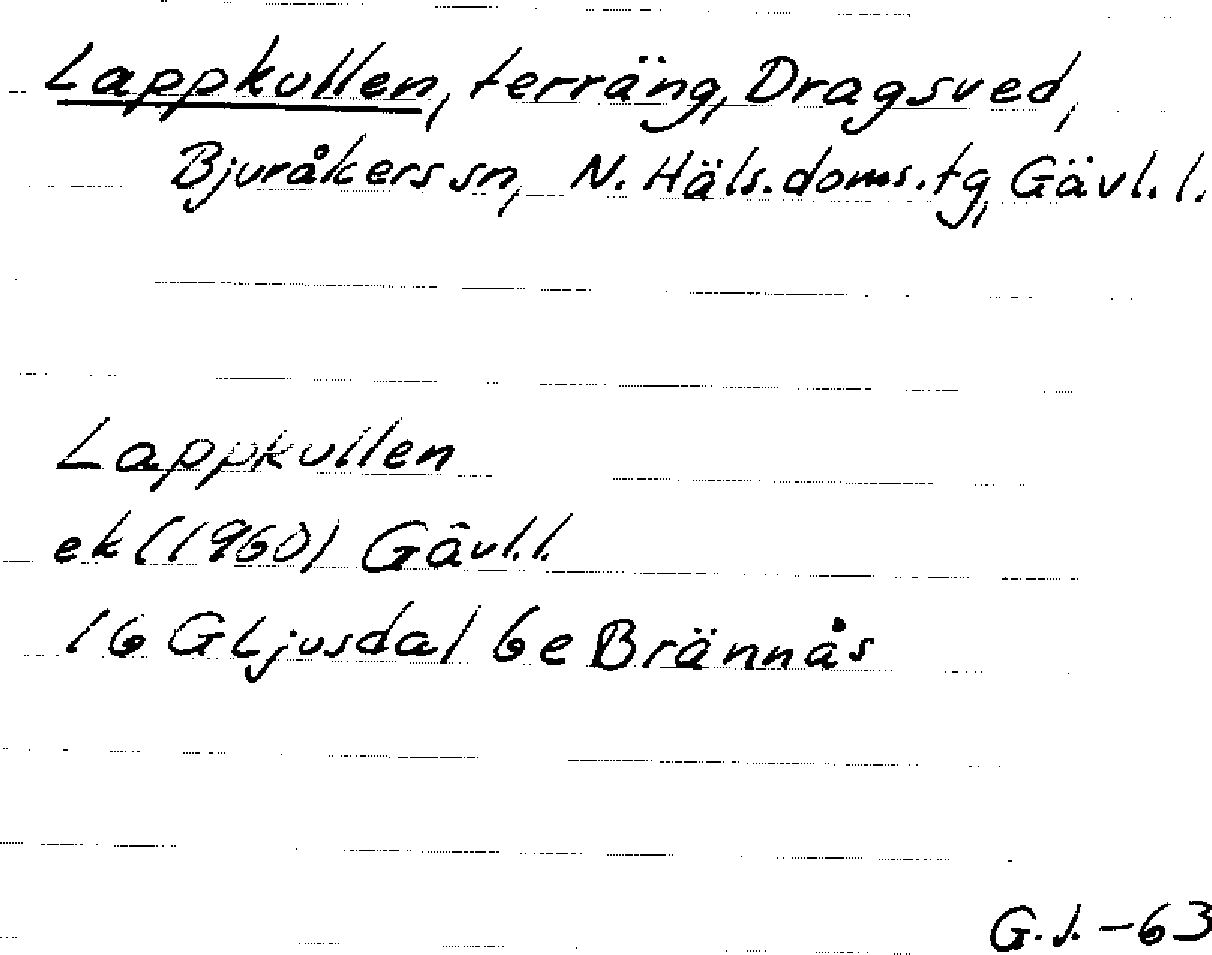 Lappkullen, terräng, Dragsved,
Bjuråkers sn, N. Häls. doms. tg, Gävl. l.
Lappkullen
ek (1960) Gävl. l.
16 G Ljusdal 6e Brännås
G. J. - 63